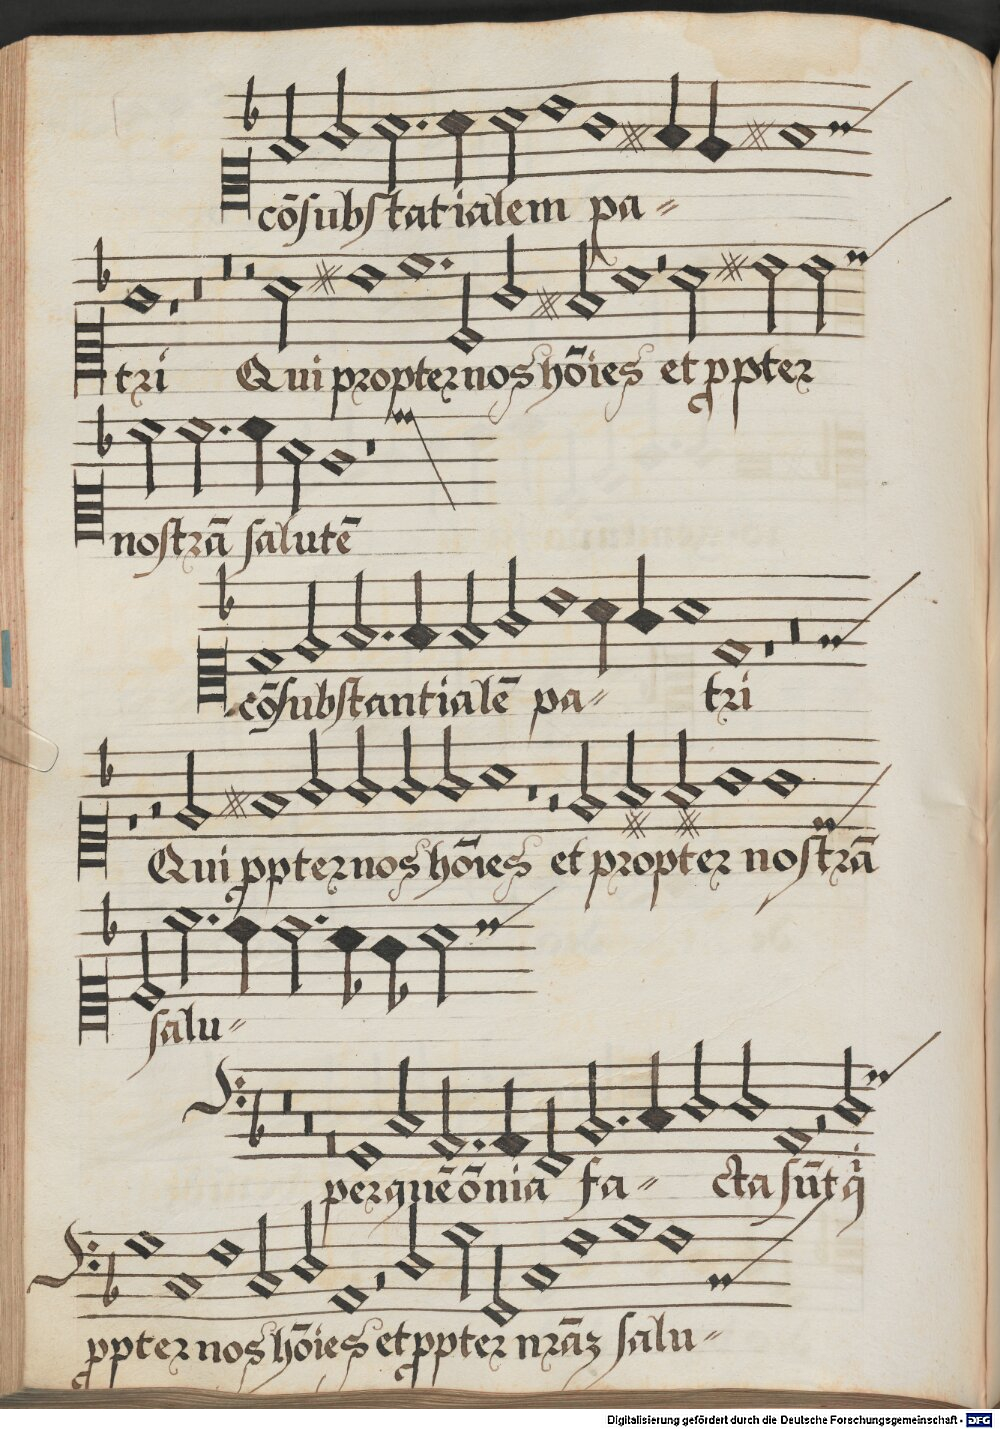 cōsubstatialem pa⸗
tri Qui propter nos hōies et ppter
nostrā salutē
cōsubstantialē pa⸗ tri
Qui ppter nos hōies et propter nostrā
salu⸗
per quē ōnia fa⸗ cta sūt q
ppter nos hōies et ppter nrāz salu⸗
Digitalisierung gefördert durch die Deutsche Forschungsgemeinschaft - DFG